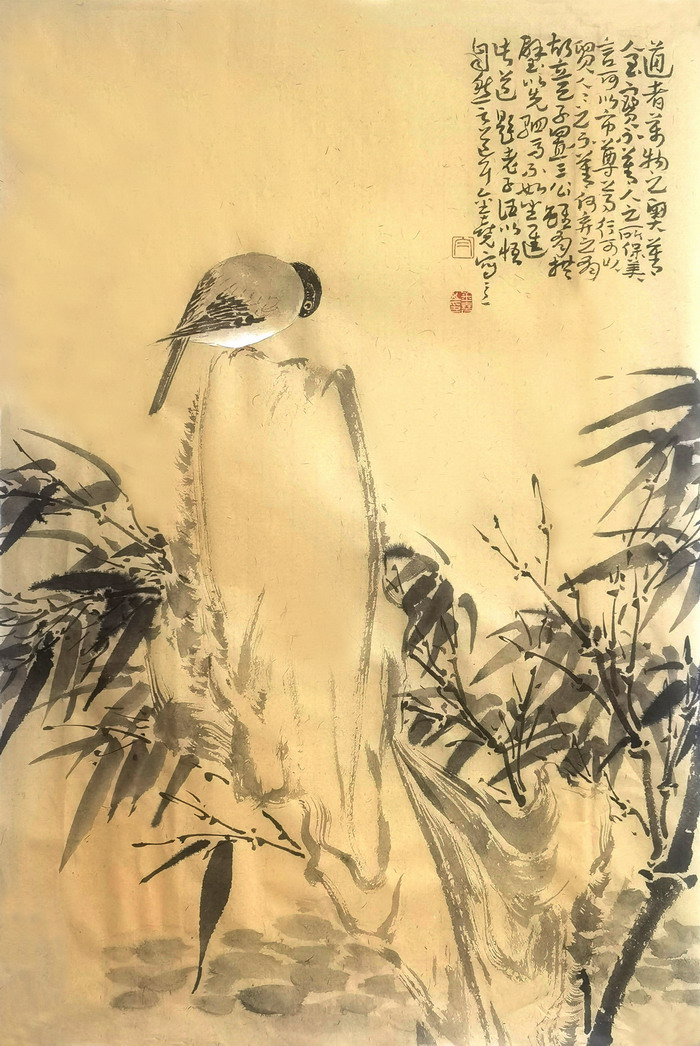 道者萬物之奧善
人之寶不善人之所保美
言可以市尊美行可以
賀人人之不善何棄之有
故立天子置三公雖有拱
璧以先駟馬不如坐進
此道題老子語以悟
自然之道寫之